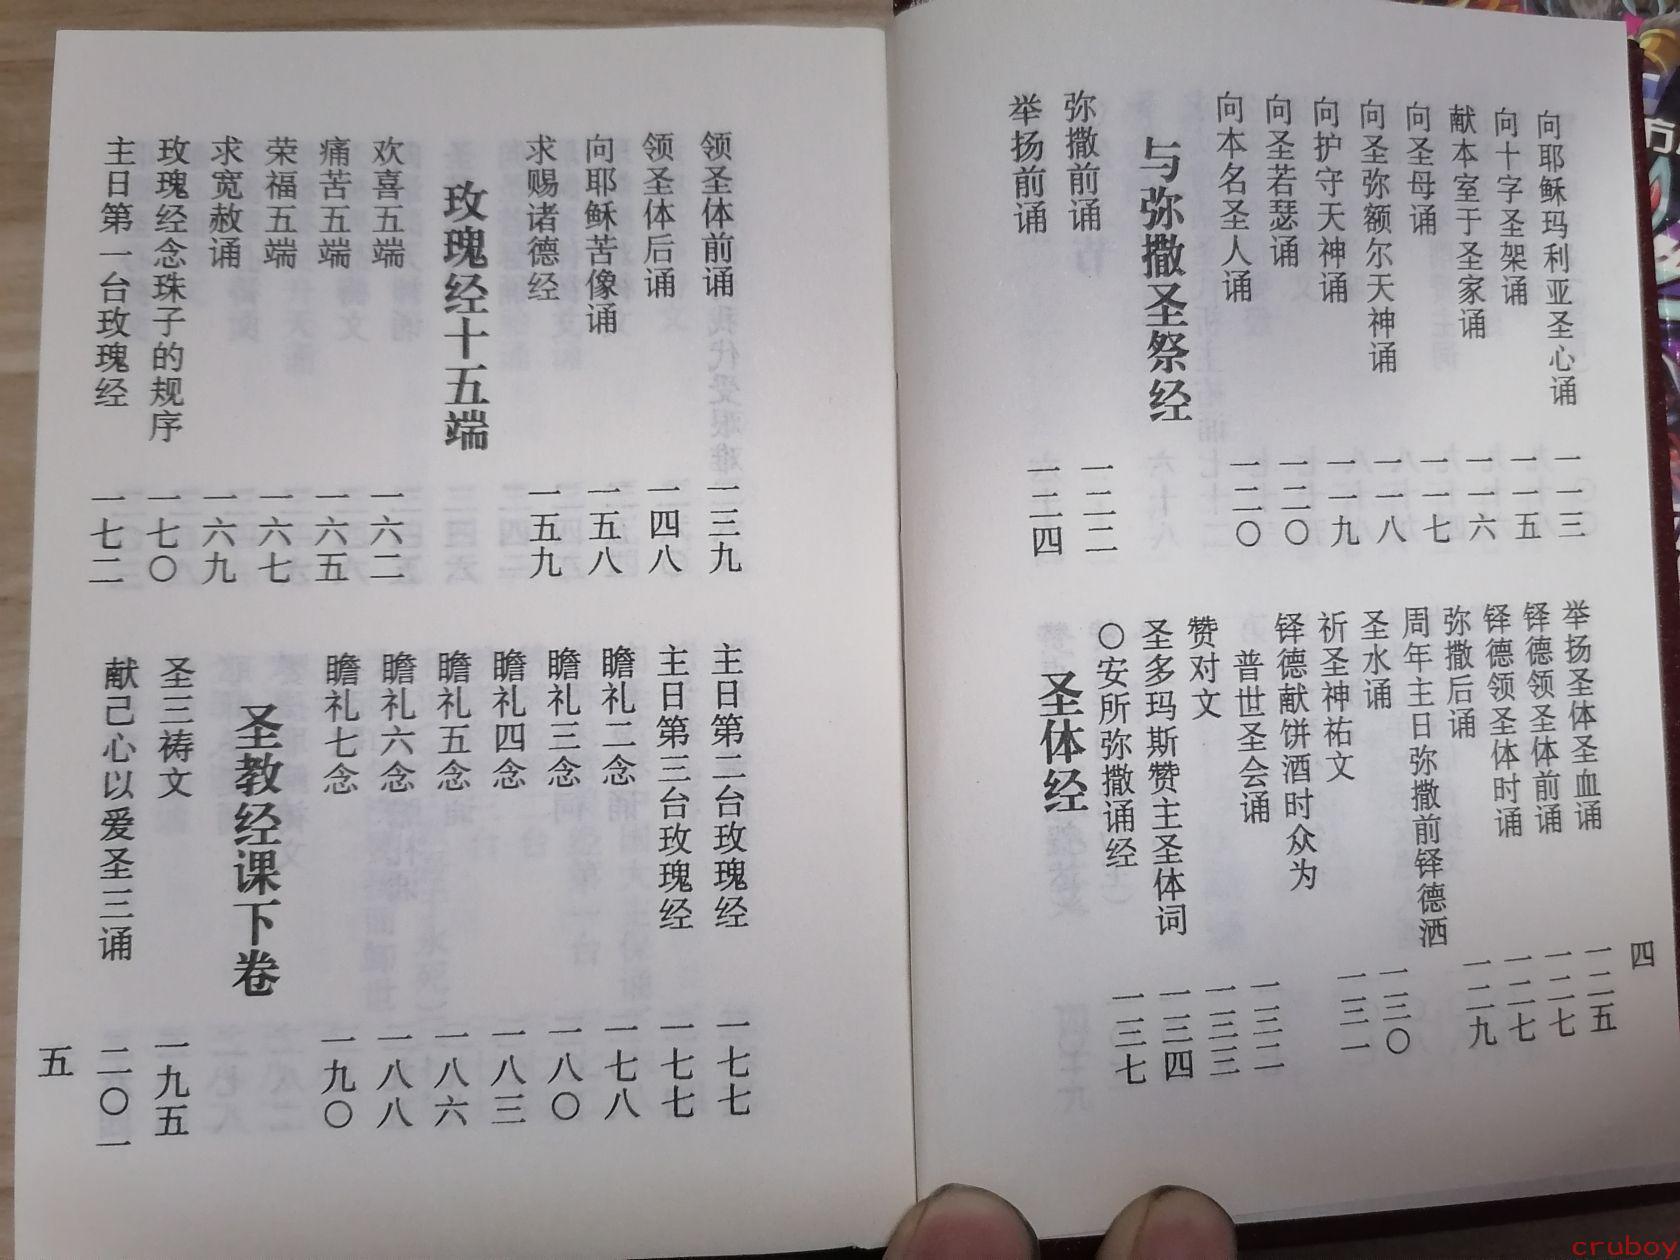 向耶稣玛利亚圣心诵 一一三
向十字圣架诵 一一五
献本室于圣家诵 一一六
向圣母诵 一一七
向圣弥额尔天神诵 一一八
向护守天神诵 一一九
向圣若瑟诵 一二〇
向本名圣人诵 一二〇
与弥撒圣祭经
弥撒前诵 一二二
举扬前诵 一二四
举扬圣体圣血诵 一二五
铎德领圣体前诵 一二七
铎德领圣体时诵 一二七
弥撒后诵 一二九
周年主日弥撒前铎德洒
圣水诵 一三〇
祈圣神祐文 一三一
铎德献饼酒时众为
普世圣会诵 一三二
赞对文 一三三
圣多玛斯赞主圣体词 一三四
〇安所弥撒诵经 一三七
圣体经
四
领圣体前诵 一三九
领圣体后诵 一四八
向耶稣苦像诵 一五八
求赐诸德经 一五九
玫瑰经十五端
欢喜五端 一六二
痛苦五端 一六五
荣福五端 一六七
求宽赦诵 一六九
玫瑰经念珠子的规序 一七〇
主日第一台玫瑰经 一七二
主日第二台玫瑰经 一七七
主日第三台玫瑰经 一七七
瞻礼二念 一七八
瞻礼三念 一八〇
瞻礼四念 一八三
瞻礼五念 一八六
瞻礼六念 一八八
瞻礼七念 一九〇
圣教经课下卷
圣三祷文 一九五
献己心以爱圣三诵 二〇一
五
cruboy